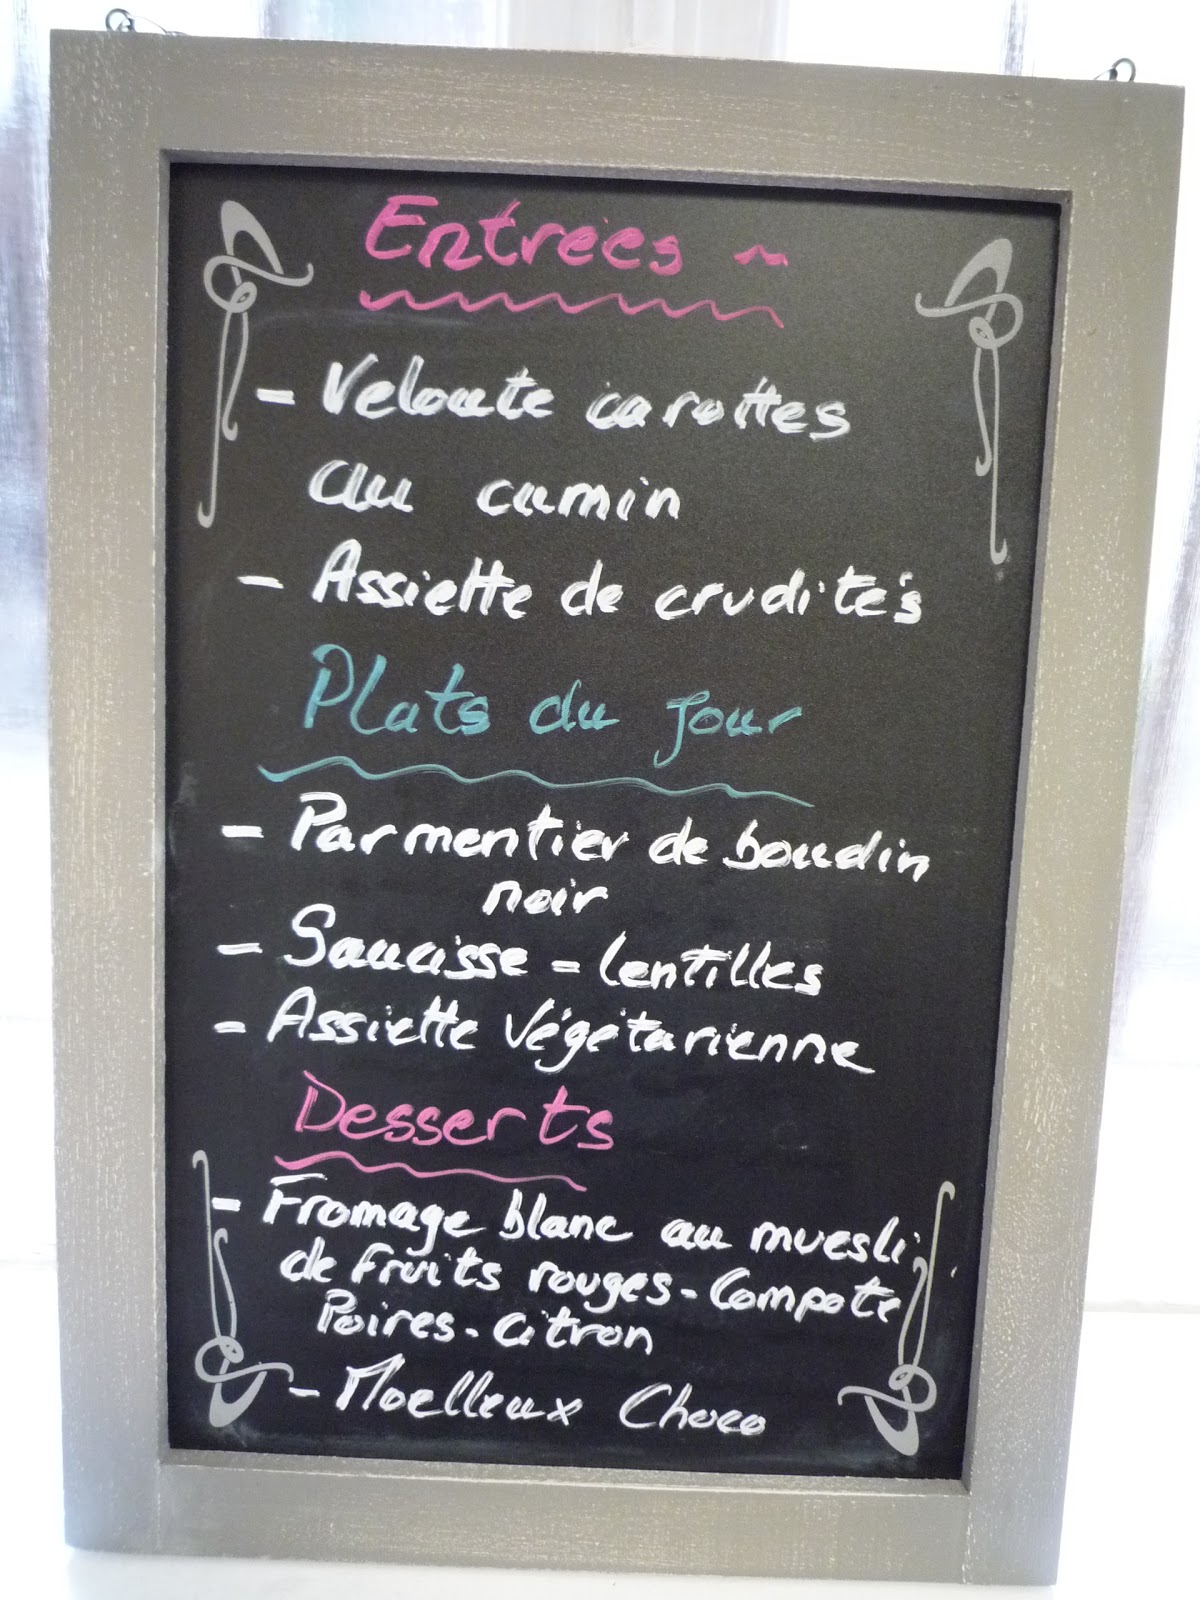 Entrées ~
- Velouté carottes
au cumin
- Assiette de crudités
Plats du jour
- Parmentier de boudin
noir
- Saucisse - lentilles
- Assiette végétarienne
Desserts
- Fromage blanc au muesli
de fruits rouges - Compote
Poires - Citron
- Moelleux Choco